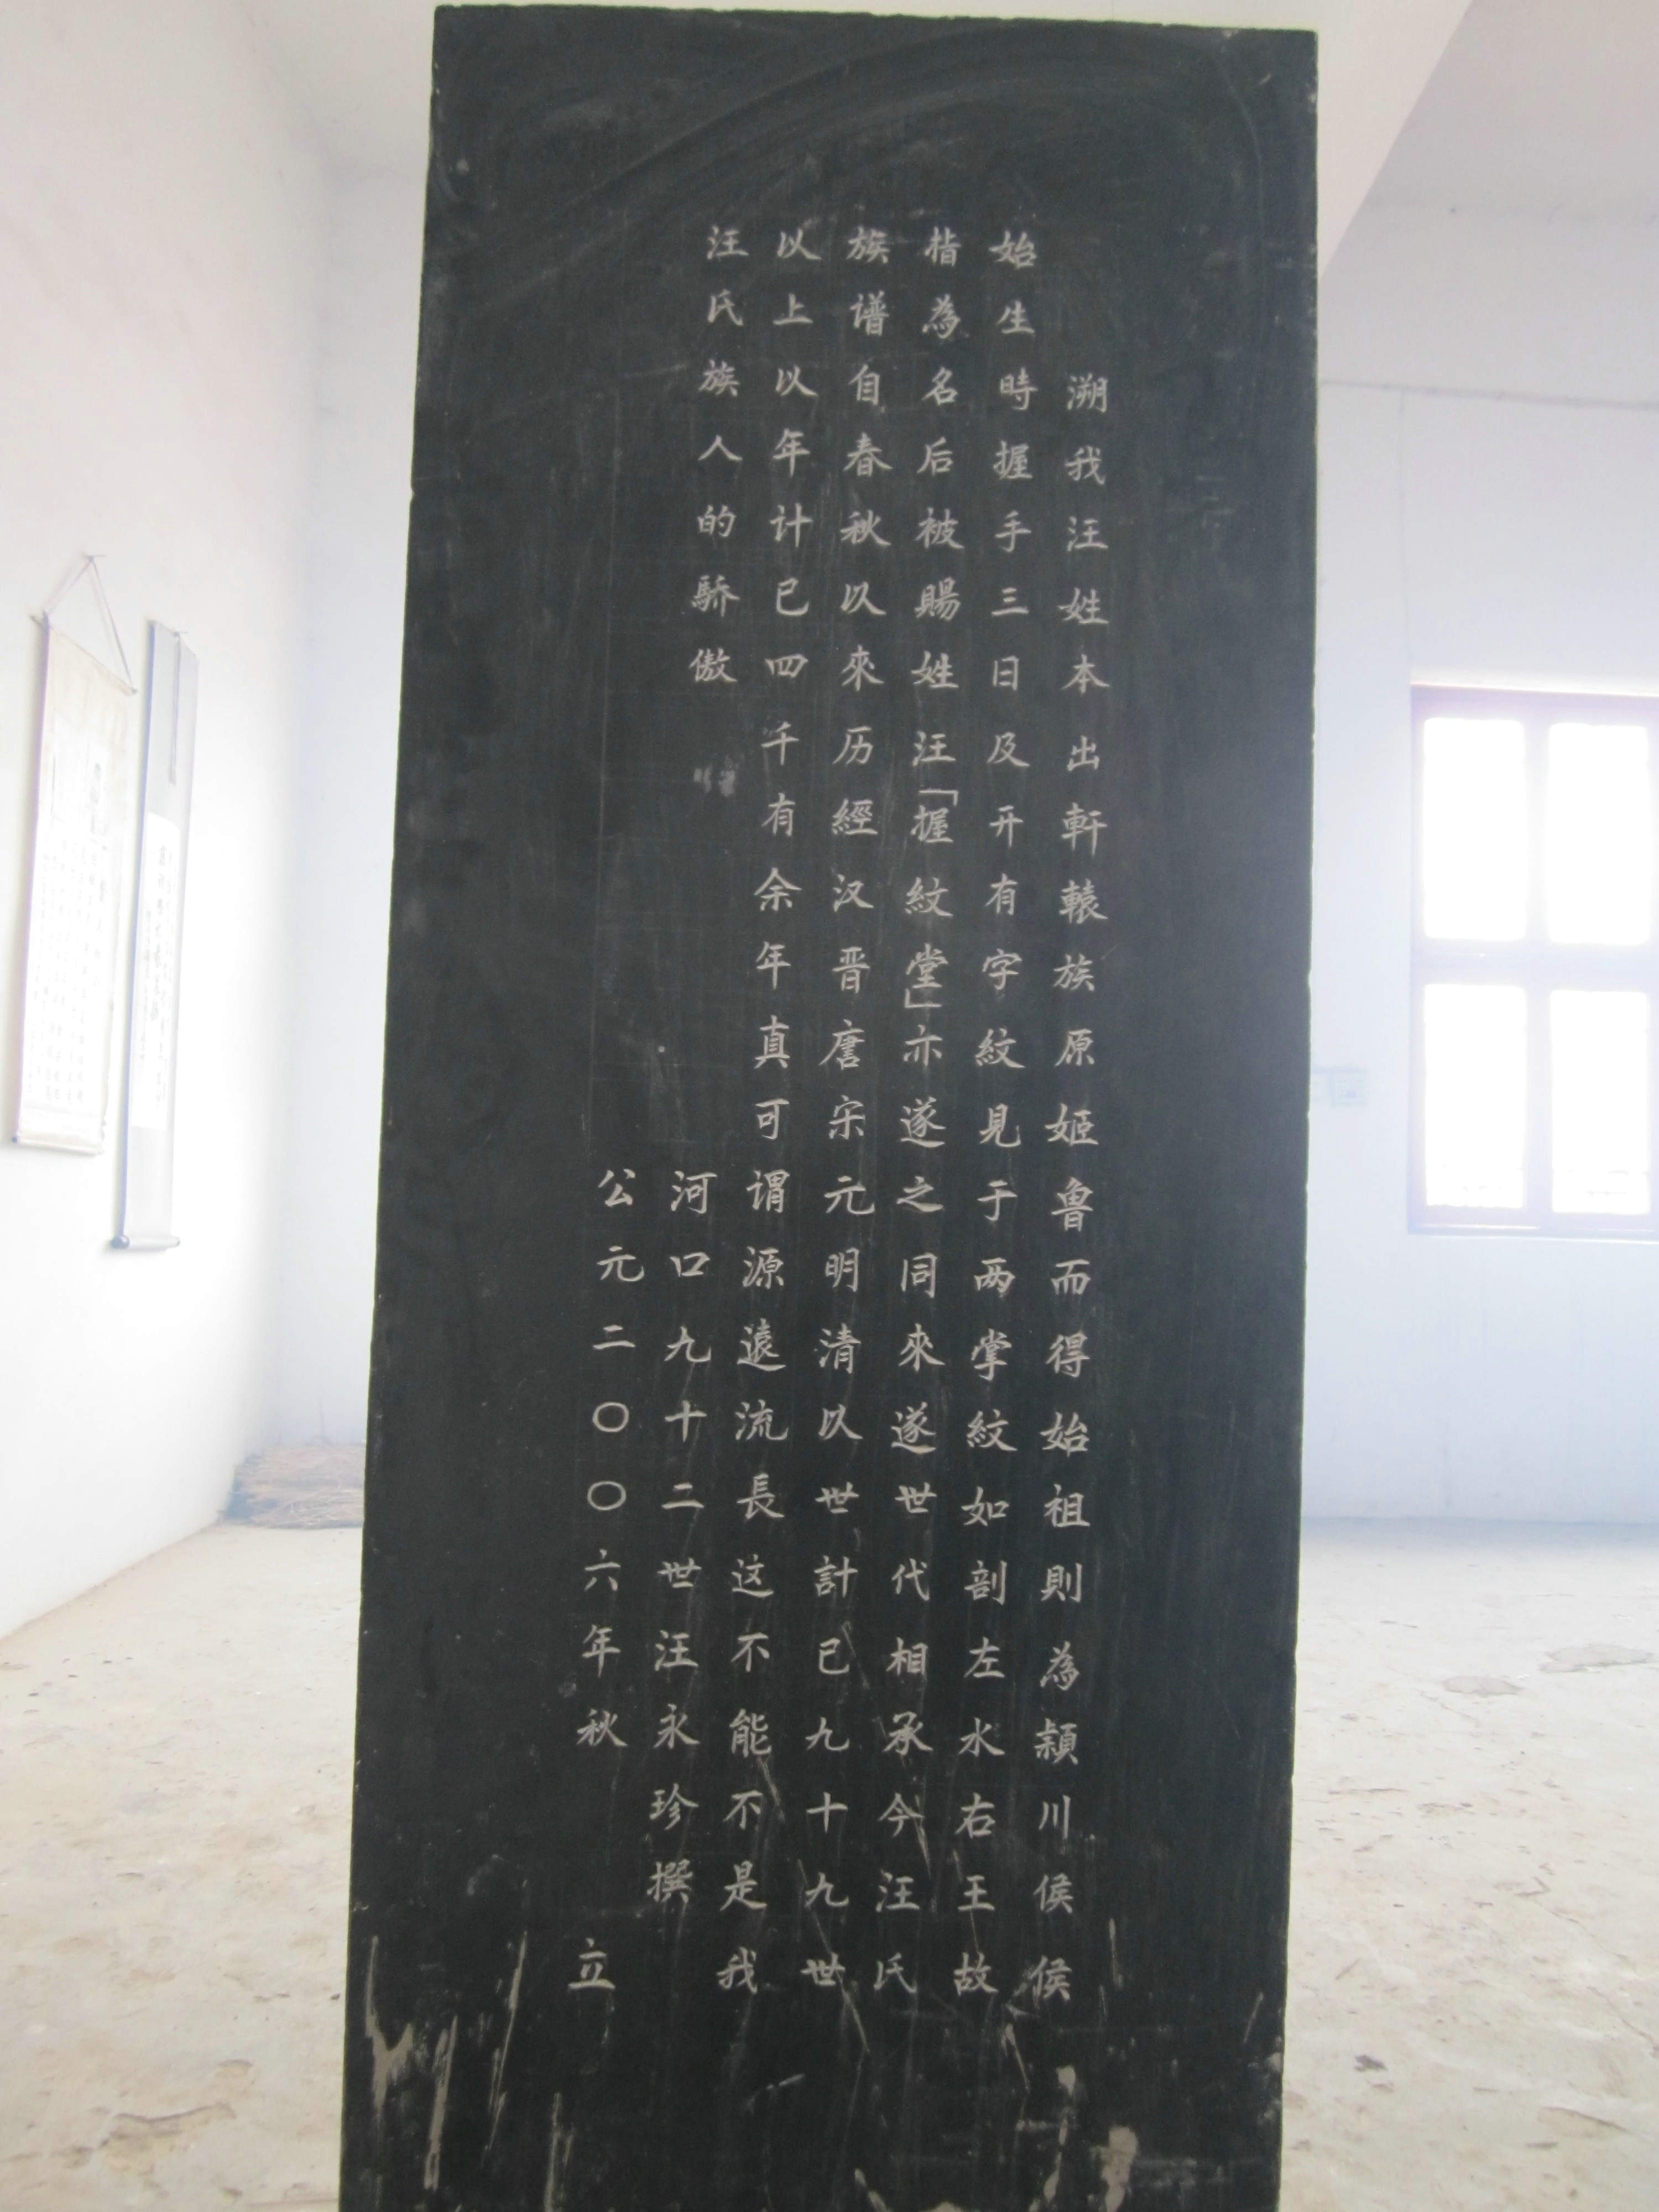 溯我汪姓本出軒轅族原姬鲁而得始祖則為潁川侯侯
始生時握手三日及开有字紋見于两掌紋如剖左水右王故
指為名后被賜姓汪「握紋堂」亦遂之同來遂世代相承今汪氏
族谱自春秋以來历經汉晋唐宋元明清以世計已九十九世
以上以年计已四千有余年真可谓源遠流長这不能不是我
汪氏族人的驕傲
河口九十二世汪永珍撰
公元二〇〇六年秋 立